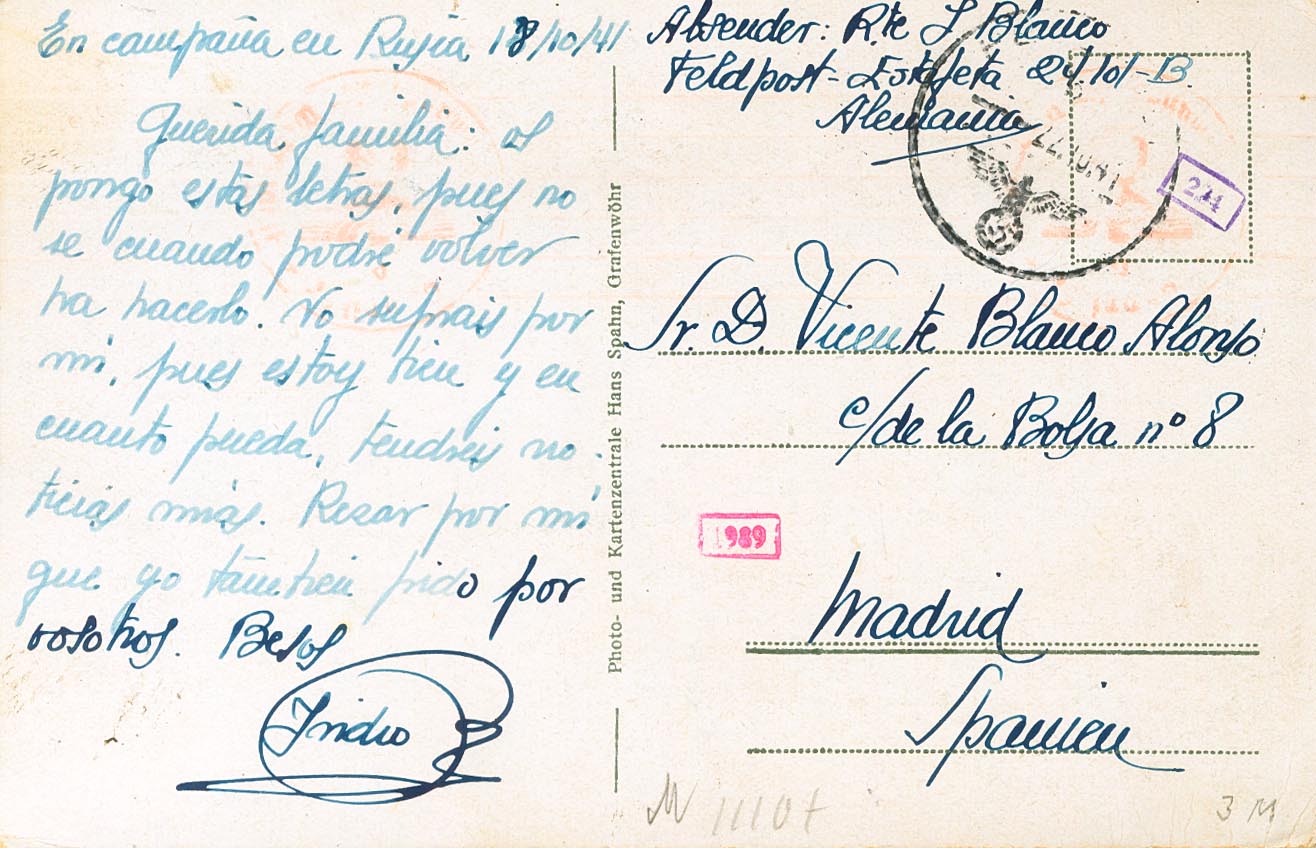 En campaña en Rusia 18/10/41
Querida familia: os
pongo estas letras, pues no
se cuando podré volver
ha hacerlo. No sufrais por
mi, pues estoy bien y en
cuanto pueda, tendreis no-
ticias mías. Rezar por mi
que yo tambien pido por
vosotros. Besos
Isidro
Photo- und Kartenzentrale Hans Spahn, Grafenwöhr
Absender: Rte I Blanco
Feldpost - Estafeta
Alemania
22.10.41
244
Sr. D. Vicente Blanco Alonso
c/ de la Bolsa nº 8
1989
Madrid
Spanien
11107
3 M